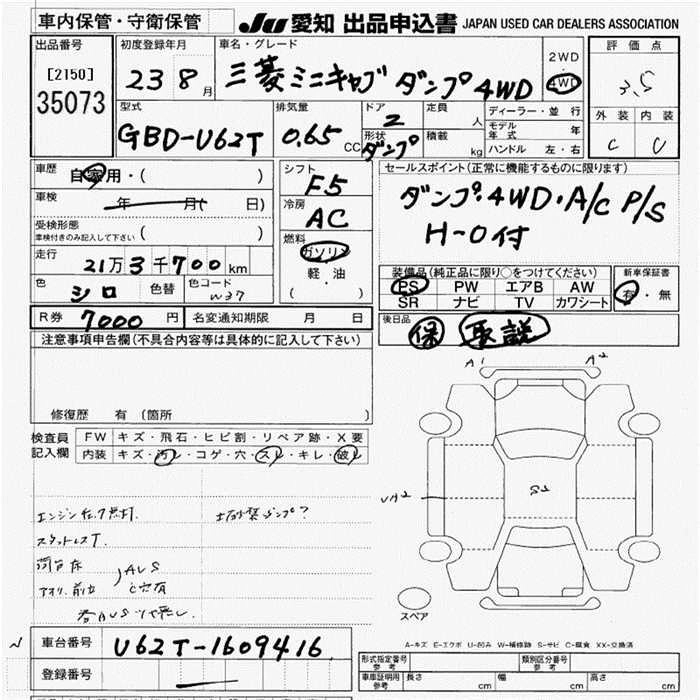 車内保管・守衛保管
JU 愛知 出品申込書 JAPAN USED CAR DEALERS ASSOCIATION
出品番号
[2150]
35073
初度登録年月
23 8月
車名・グレード
三菱ミニキャブ ダンプ 4WD
2WD
・
4WD
評価点
3.5
外装 内装
C C
型式
GBD-U62T
排気量
0.65 CC
ドア
2
形状
ダンプ
定員
人
積載
kg
ディーラー・並行
モデル年式 年
ハンドル 左・右
車歴
自家用・( )
車検
年 月( 日)
受検形態
車検付きのみ記入して下さい ( )
走行
21万3千700km
色
シロ
色替
色コード
W37
シフト
F5
冷房
AC
燃料
ガソリン
軽・油
( )
セールスポイント(正常に機能するものに限ります)
ダンプ・4WD・A/C P/S
H-O付
装備品(純正品に限り○をつけてください)
PS PW エアB AW
SR ナビ TV カワシート
新車保証書
有・無
後日品
保 取説
R券 7000円 名変通知期限 月 日
注意事項申告欄(不具合内容等は具体的に記入して下さい)
修復歴 有 (箇所 )
検査員
記入欄
FW キズ・飛石・ヒビ割・リペア跡・X要
内装 キズ・汚レ・コゲ・穴・スレ・キレ・破レ
A1 A2
S2
エンジンチェック点灯
土砂禁ダンプ?
スタットレスT.
荷台床
アオリ、前立
AUS
C穴有
N
車台番号 U62T-1609416
登録番号
スペア
A-キズ E-エクボ U-凹み W-補修跡 S-サビ C-腐食 XX-交換済
形式指定番号
参考
類別区分番号
参考
車庫証明用
参考
長さ cm 幅 cm 高さ cm